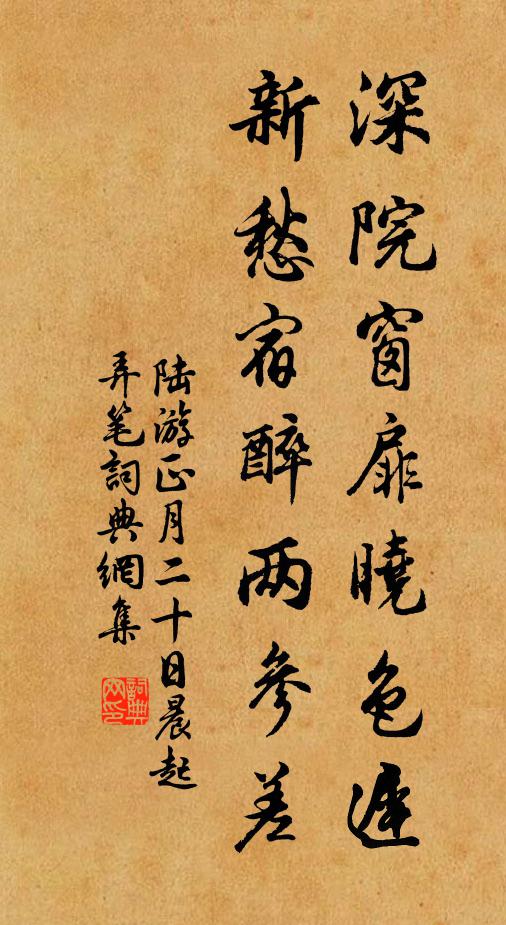 深院窗扉曉色遲
新愁宿醉两參差
陆游正月二十日晨起
弄笔詞典網集
詞典网印